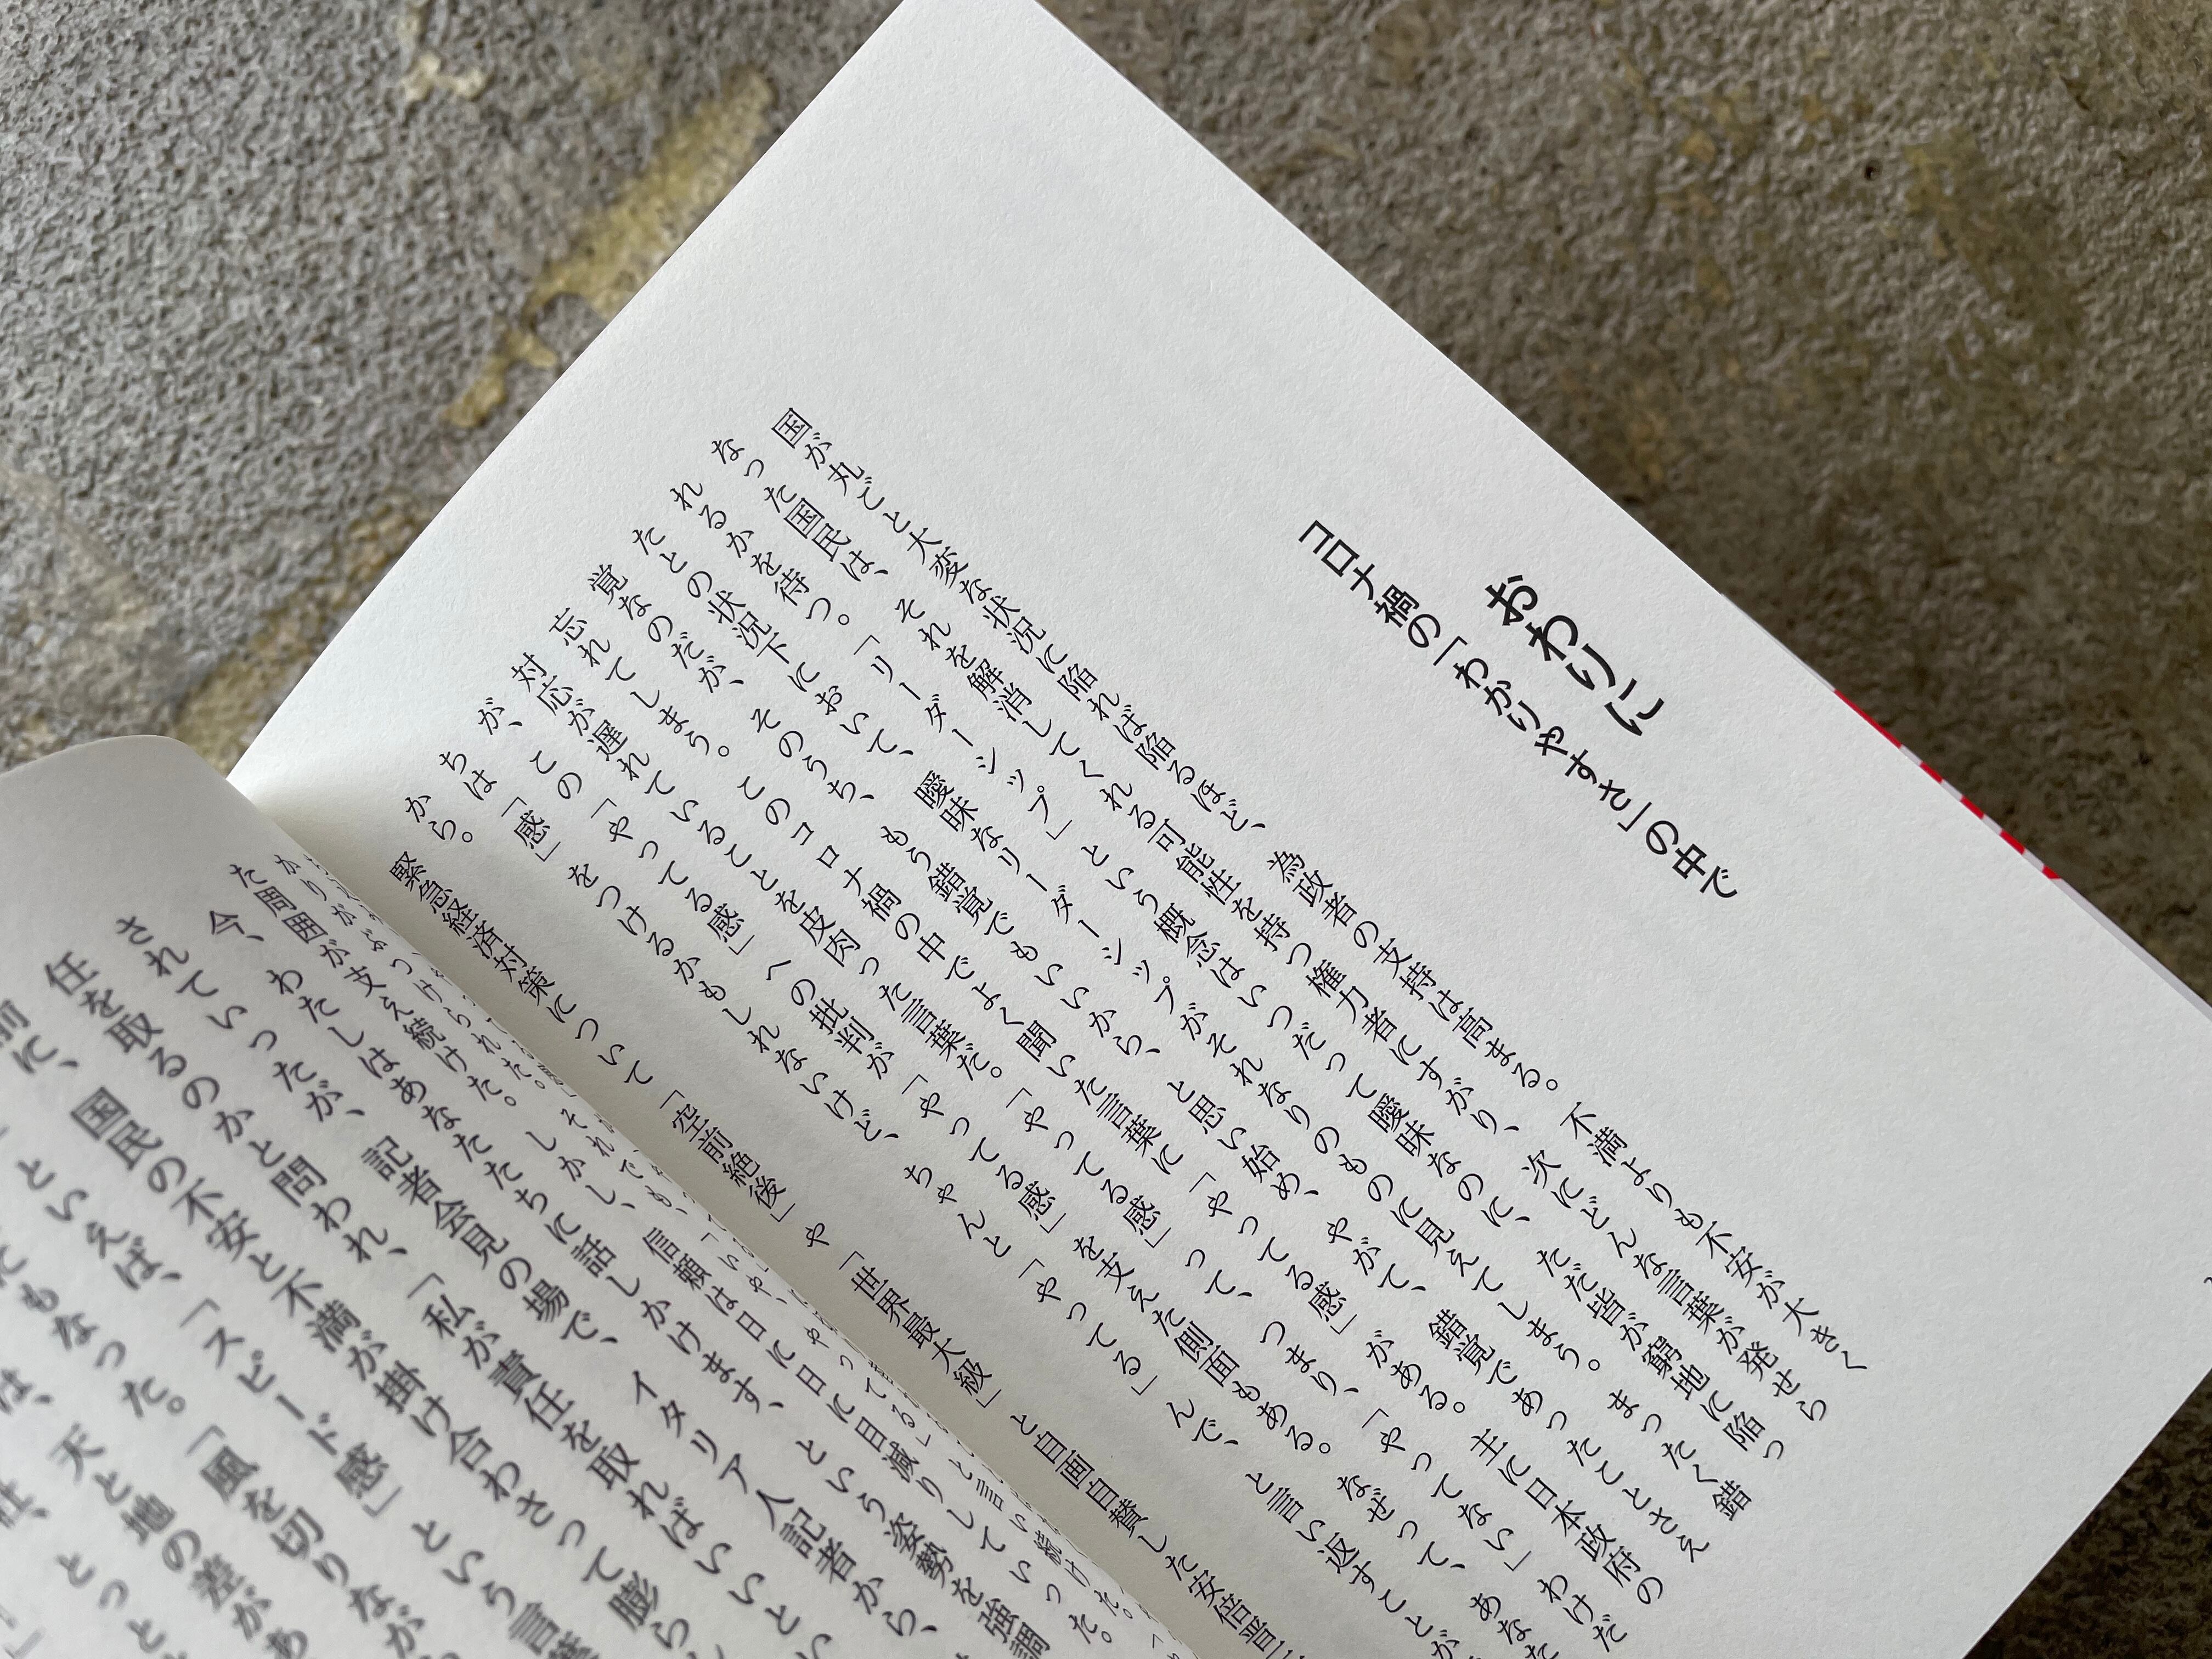 おわりに
コロナ禍の「わかりやすさ」の中で
国が丸ごと大変な状況に陥れば陥るほど、為政者の支持は高まる。不満よりも不安が大きく
なった国民は、それを解消してくれる可能性を持つ権力者にすがり、次にどんな言葉が発せら
れるかを待つ。「リーダーシップ」という概念はいつだって曖昧なのに、ただ皆が窮地に陥っ
たとの状況下において、曖昧なリーダーシップがそれなりのものに見えてしまう。まったく錯
覚なのだが、そのうち、もう錯覚でもいいから、と思い始め、やがて、錯覚であったことさえ
忘れてしまう。このコロナ禍の中でよく聞いた言葉に「やってる感」がある。主に日本政府の
対応が遅れていることを皮肉った言葉だ。「やってる感」って、つまり、「やってない」わけだ
が、この「やってる感」への批判が「やってる感」を支えた側面もある。なぜって、あなた
ちは「感」をつけるかもしれないけど、ちゃんと「やってる」んで、と言い返すことが
から。
緊急経済対策について「空前絶後」や「世界最大級」と自画自賛した安倍晋三
かりがぶつけられた。それでも、「いや、やってる」と言い続けた。
た周囲が支え続けた。しかし、信頼は日に日に目減りしていった。
今、わたしはあなたたちに話しかけます、という姿勢を強調
されていったが、記者会見の場で、イタリア人記者から、
任を取るのかと問われ、「私が責任を取ればいいとい
前に、国民の不安と不満が掛け合わさって膨ら
といえば、「スピード感」という言葉
にもなった。「風を切りなが
は、天と地の差があ
とっと